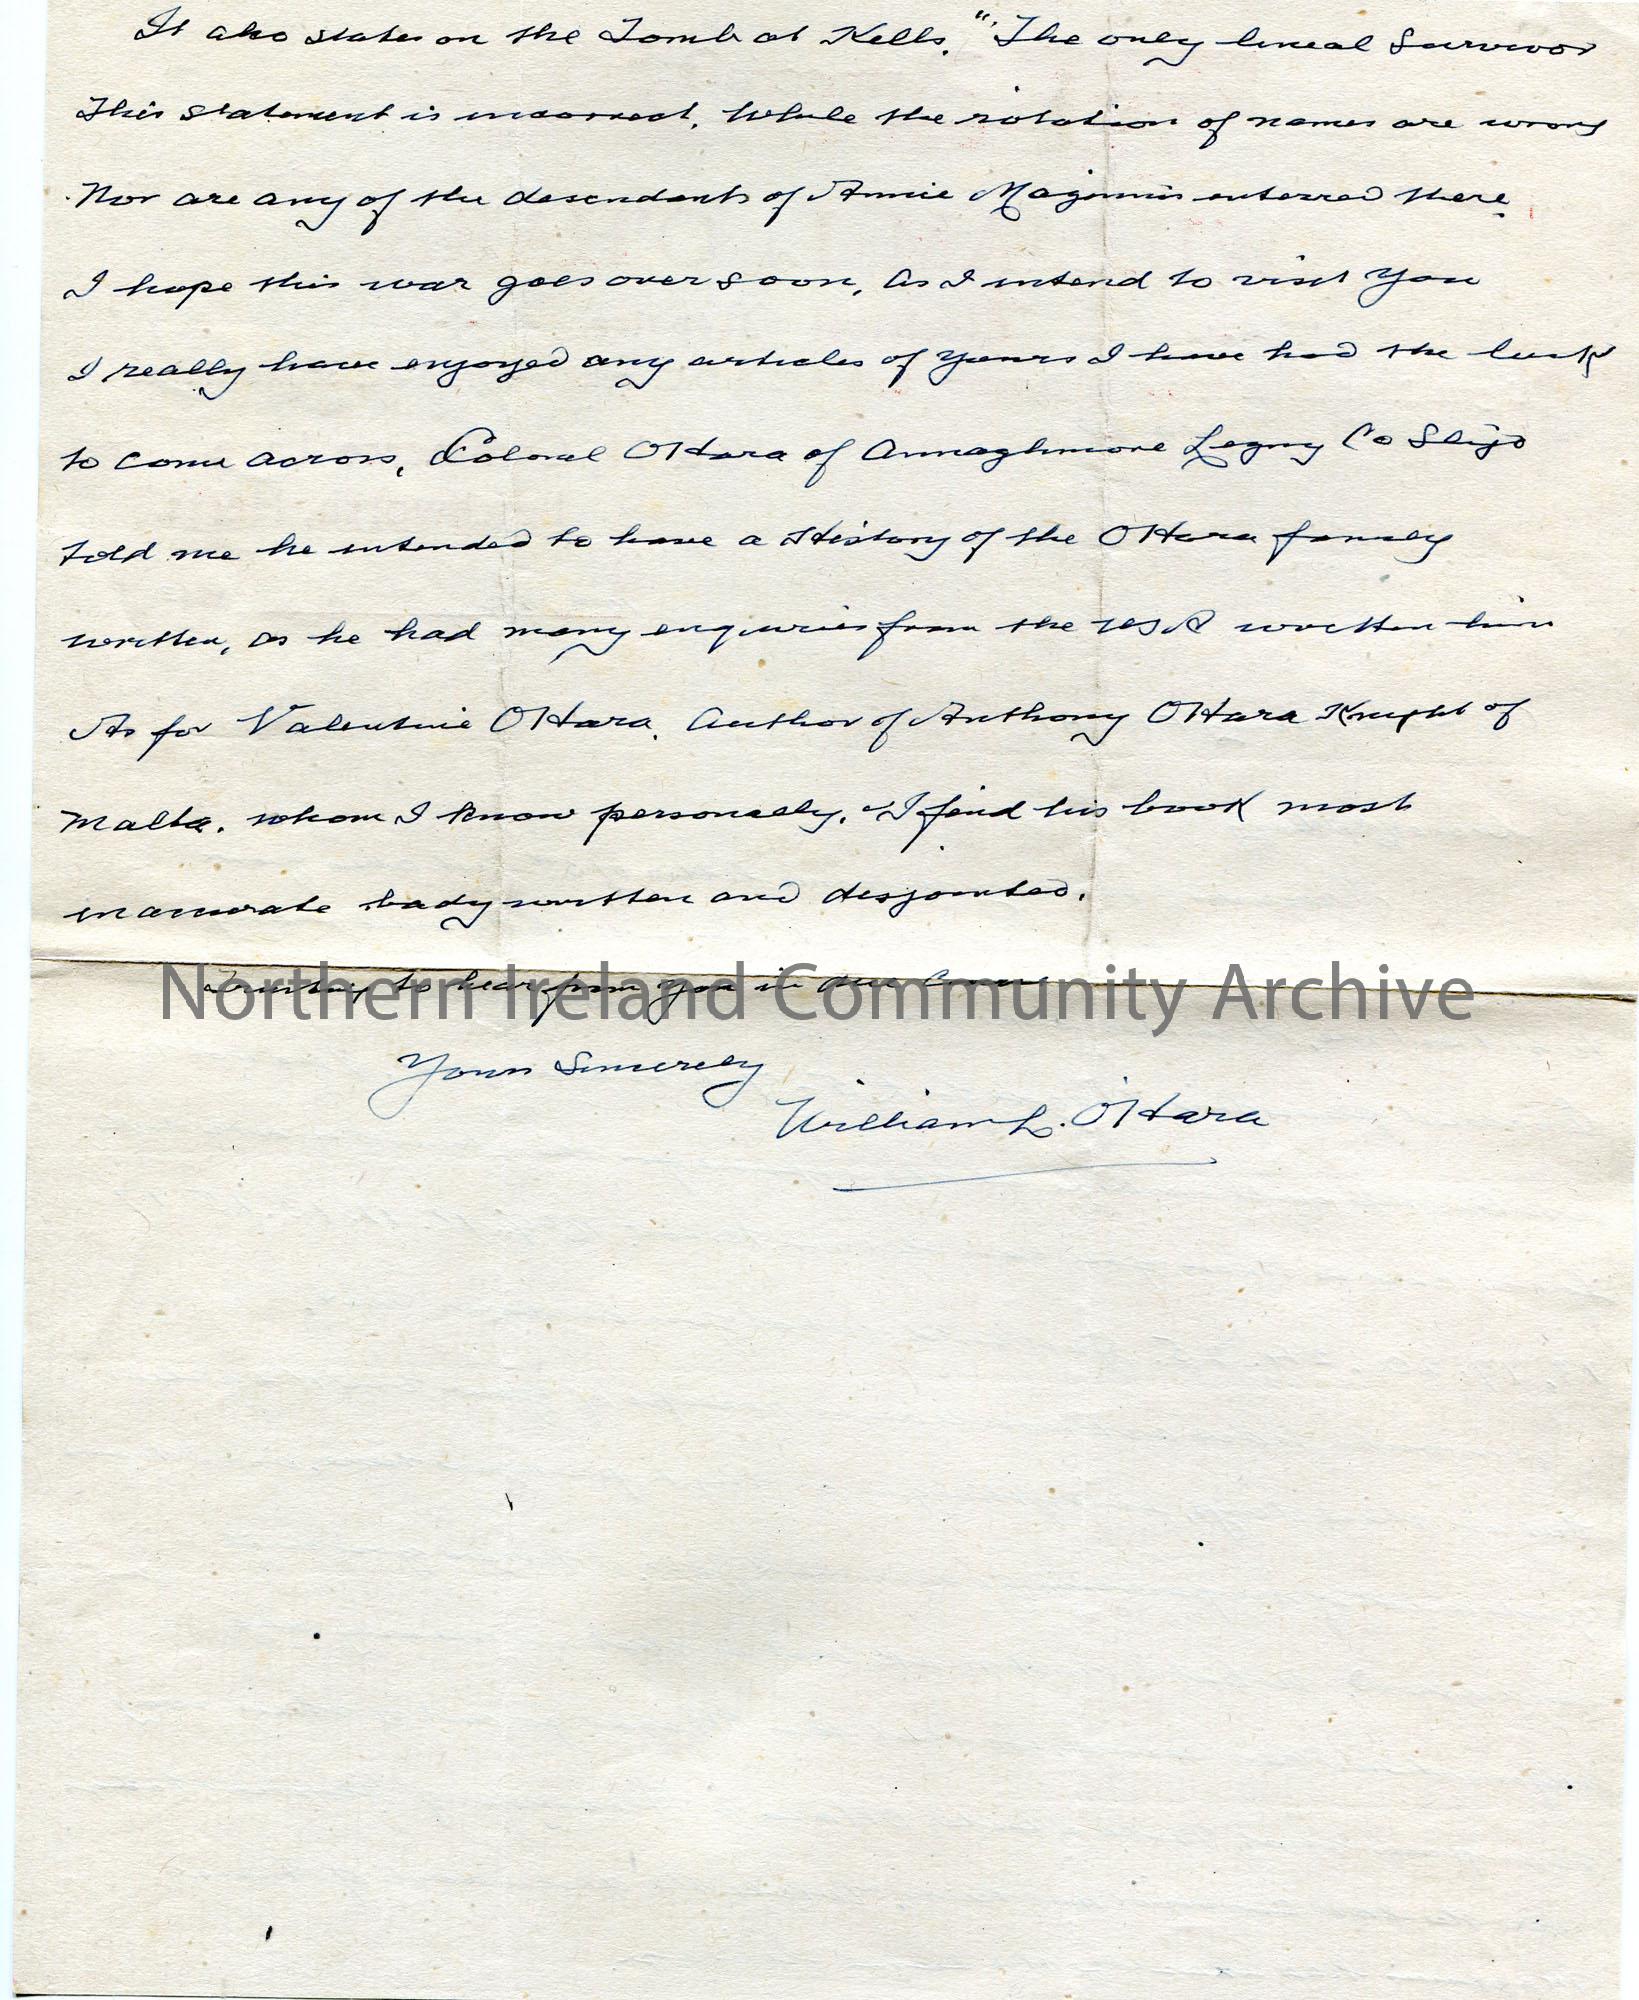 It also states on the Tomb at Kells. "The only lineal Survivor
This statement is incorrect. While the rotation of names are wrong
Nor are any of the descendents of Annie Maginnis enterred there.
I hope this war goes over soon, as I intend to visit you
I really have enjoyed any articles of yours I have had the luck
to come across, Colonel O'Hara of Annaghmore Legny Co Sligo
told me he intended to have a History of the O'Hara family
written, as he had many enquiries from the USA written him
As for Valentine O'Hara. Author of Anthony O'Hara Knight of
Malta. whom I know personally. I find his book most
inacurate bady written and disjointed.
Trusting to hear from you in due Course
Northern Ireland Community Archive
Yours Sincerely
William L. O'Hara